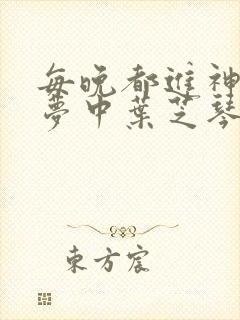 每晚都進神
夢中葉芝琴
東方宸